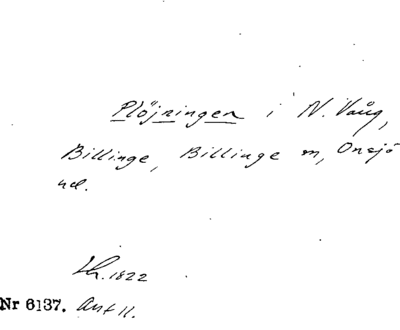 Plöjningen i N. Vång,
Billinge, Billinge sn, Onsjö
hd.
1822
Nr 6137. Ant 11.